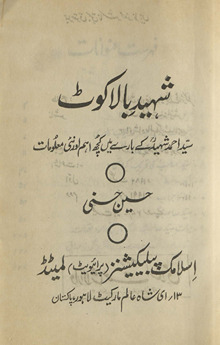 شہیدِ بالاکوٹ
سیّد احمد شہیدؒ کے بارے میں کچھ اہم اور نئی معلومات
حسین حسنی
اسلامک پبلیکیشنز (پرائیوٹ) لمیٹڈ
۱۳۔ ای شاہ عالم مارکیٹ لاہور پاکستان